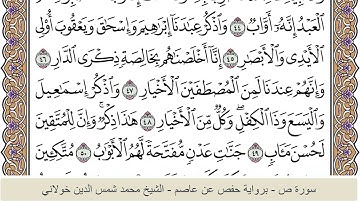 ٱلْعَبْدُ إِنَّهُۥٓ أَوَّابٌ ٤٤ وَٱذْكُرْ عِبَٰدَنَآ إِبْرَٰهِيمَ وَإِسْحَٰقَ وَيَعْقُوبَ أُو۟لِى
ٱلْأَيْدِى وَٱلْأَبْصَٰرِ ٤٥ إِنَّآ أَخْلَصْنَٰهُم بِخَالِصَةٍ ذِكْرَى ٱلدَّارِ ٤٦
وَإِنَّهُمْ عِندَنَا لَمِنَ ٱلْمُصْطَفَيْنَ ٱلْأَخْيَارِ ٤٧ وَٱذْكُرْ إِسْمَٰعِيلَ
وَٱلْيَسَعَ وَذَا ٱلْكِفْلِ وَكُلٌّ مِّنَ ٱلْأَخْيَارِ ٤٨ هَٰذَا ذِكْرٌ وَإِنَّ لِلْمُتَّقِينَ
لَحُسْنَ مَـَٔابٍ ٤٩ جَنَّٰتِ عَدْنٍ مُّفَتَّحَةً لَّهُمُ ٱلْأَبْوَٰبُ ٥٠ مُتَّكِـِٔينَ
سورة ص - برواية حفص عن عاصم - الشيخ محمد شمس الدين خولاني